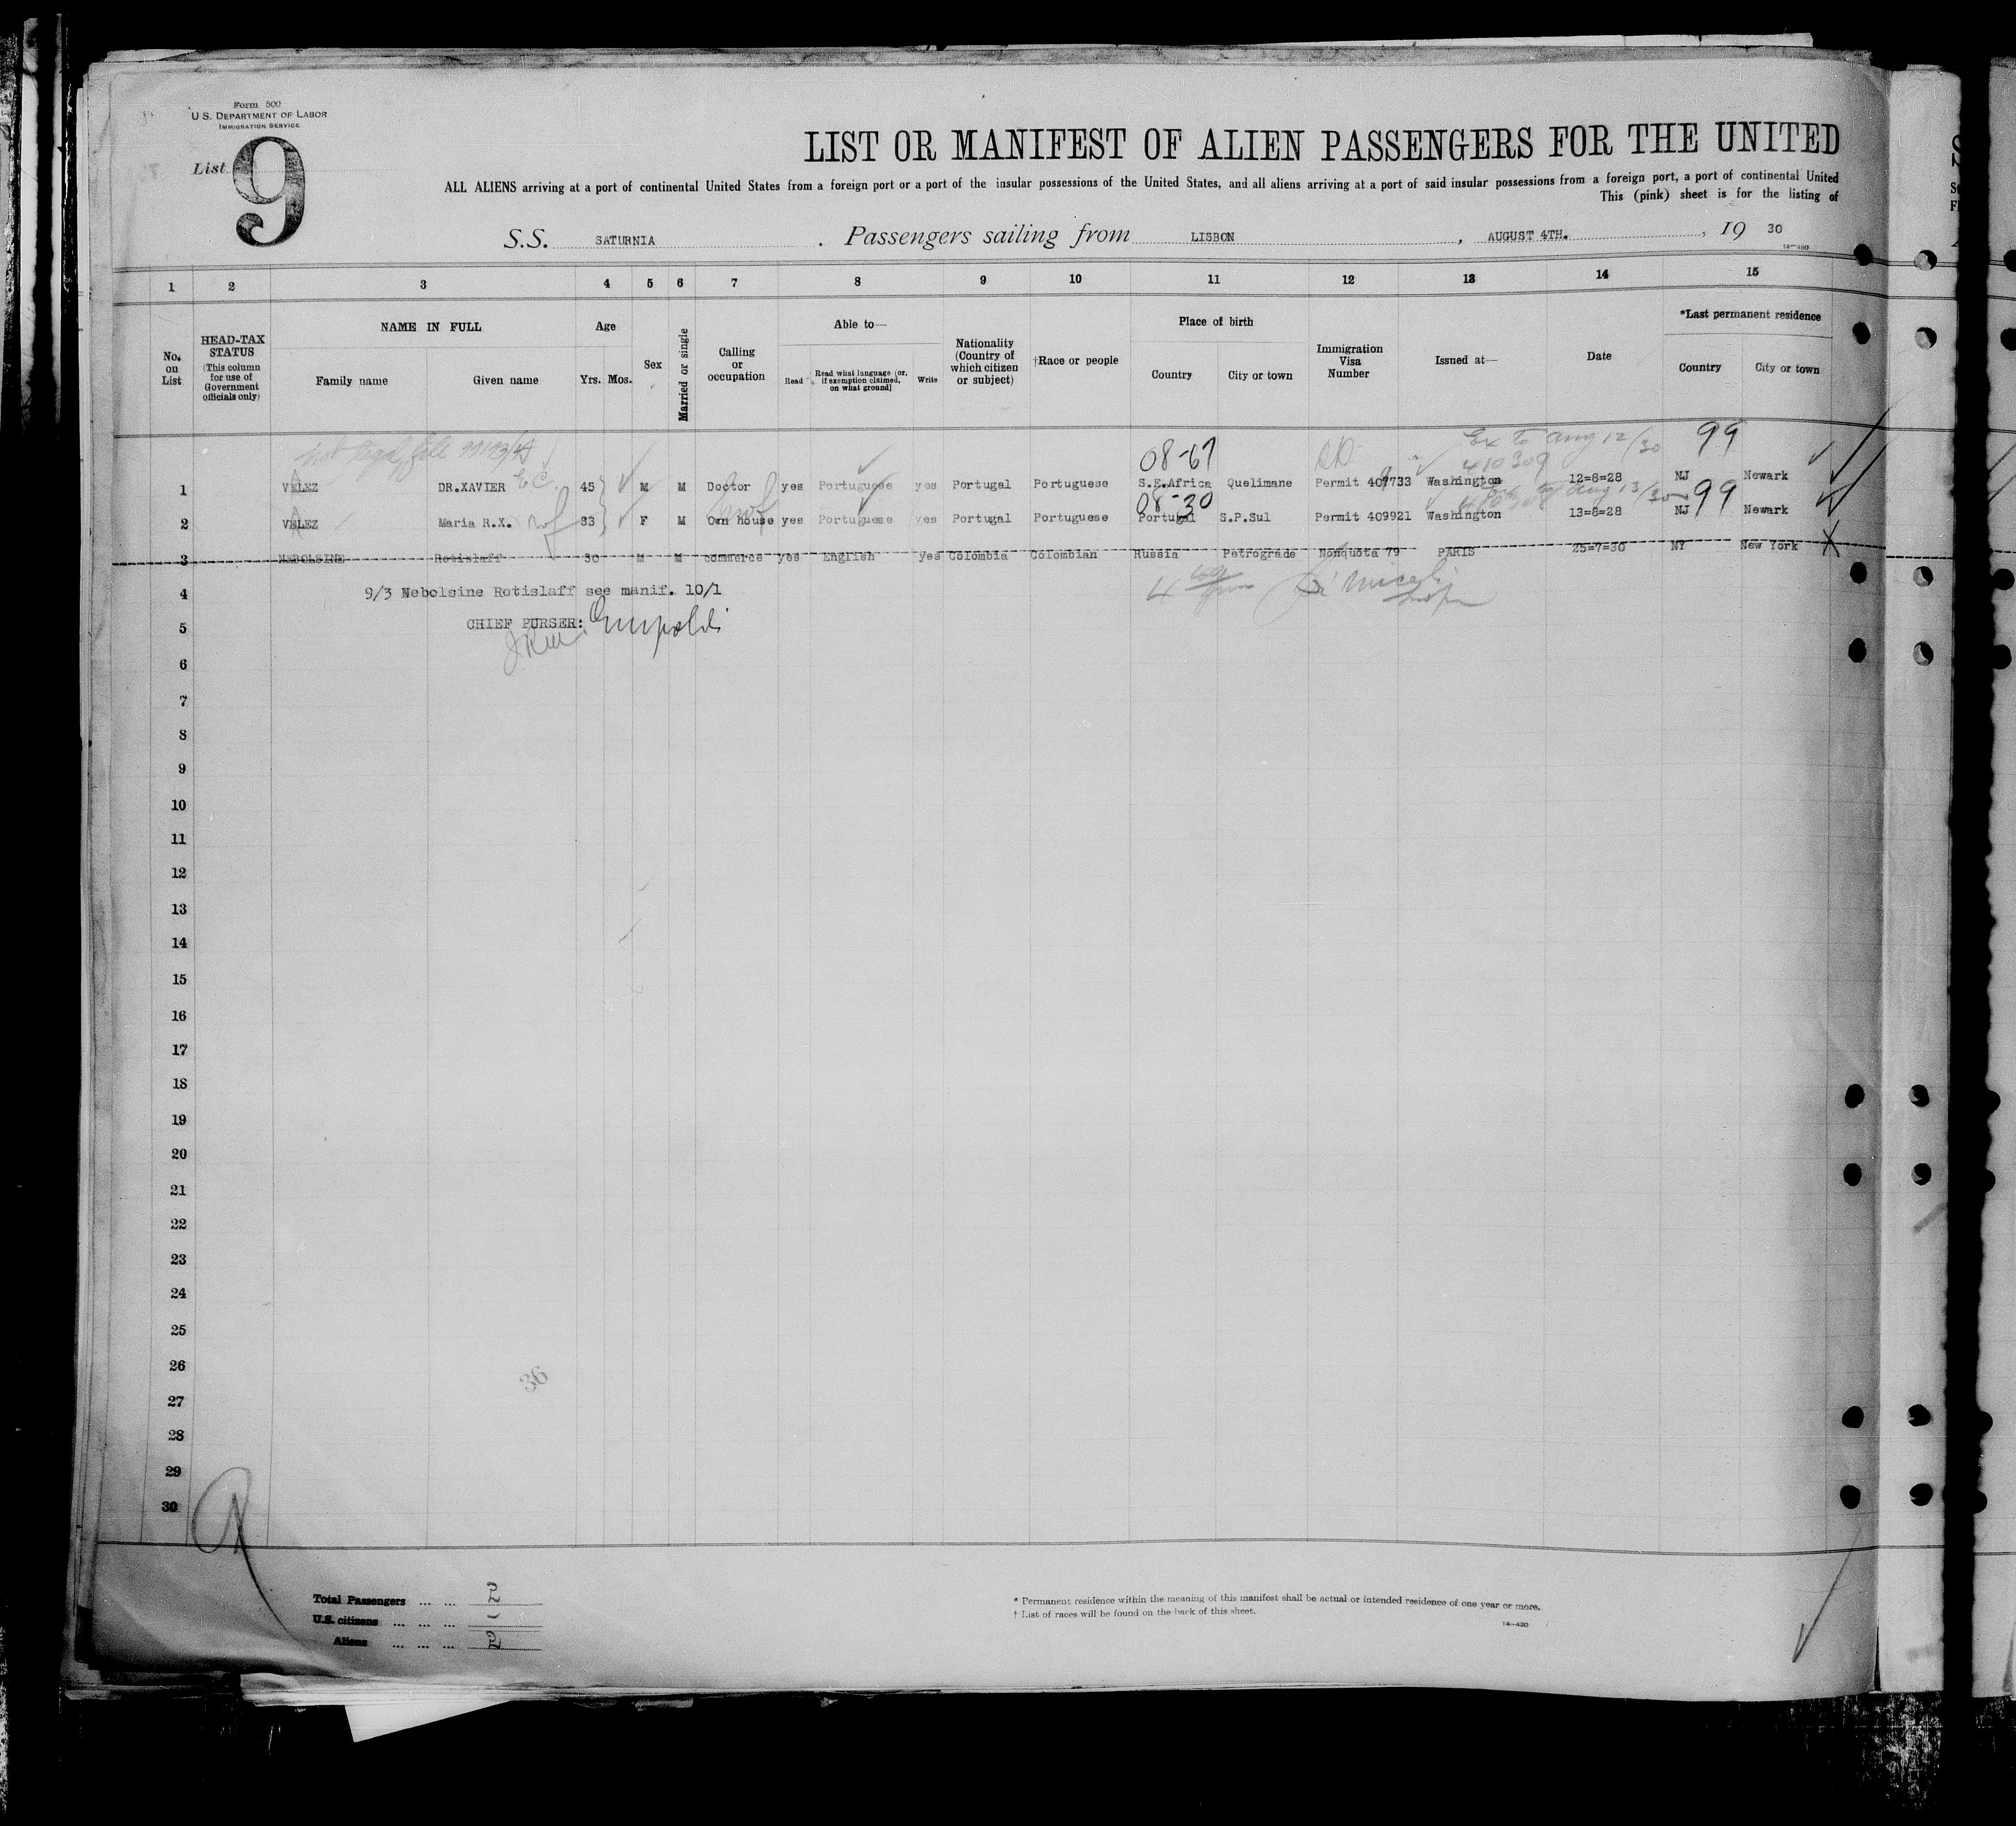 Form 500
U.S. DEPARTMENT OF LABOR
IMMIGRATION SERVICE
List 9
LIST OR MANIFEST OF ALIEN PASSENGERS FOR THE UNITED
ALL ALIENS arriving at a port of continental United States from a foreign port or a port of the insular possessions of the United States, and all aliens arriving at a port of said insular possessions from a foreign port, a port of continental United
This (pink) sheet is for the listing of
S.S. SATURNIA . Passengers sailing from LISBON , AUGUST 4TH. , 19 30
14—430
1 2 3 4 5 6 7 8 9 10 11 12 13 14 15
No. on List
HEAD-TAX STATUS (This column for use of Government officials only)
NAME IN FULL
Family name Given name
Age
Yrs. Mos.
Sex
Married or single
Calling or occupation
Able to—
Read Read what language (or, if exemption claimed, on what ground) Write
Nationality (Country of which citizen or subject)
†Race or people
Place of birth
Country City or town
Immigration Visa Number
Issued at—
Date
*Last permanent residence
Country City or town
08-67 Ex to Aug 12/30 99
410309
1 VELEZ DR.XAVIER 45 M M Doctor yes Portuguese yes Portugal Portuguese S.E.Africa Quelimane Permit 409733 Washington 12=8=28 NJ Newark
08-30 Aug 13/30 99
2 VELEZ Maria R.X. 33 F M Own house yes Portuguese yes Portugal Portuguese Portugal S.P.Sul Permit 409921 Washington 13=8=28 NJ Newark
3 NEBOLSINE Rotislaff 30 M M commerce yes English yes Colombia Colombian Russia Petrograde Nonquota 79 PARIS 25=7=30 NY New York X
4 9/3 Nebolsine Rotislaff see manif. 10/1
5 CHIEF PURSER:
6
7
8
9
10
11
12
13
14
15
16
17
18
19
20
21
22
23
24
25
26
36
27
28
29
30
Total Passengers ... ... 2
U.S. citizens ... ... ... –
Aliens ... ... ... 2
* Permanent residence within the meaning of this manifest shall be actual or intended residence of one year or more.
† List of races will be found on the back of this sheet.
14—430